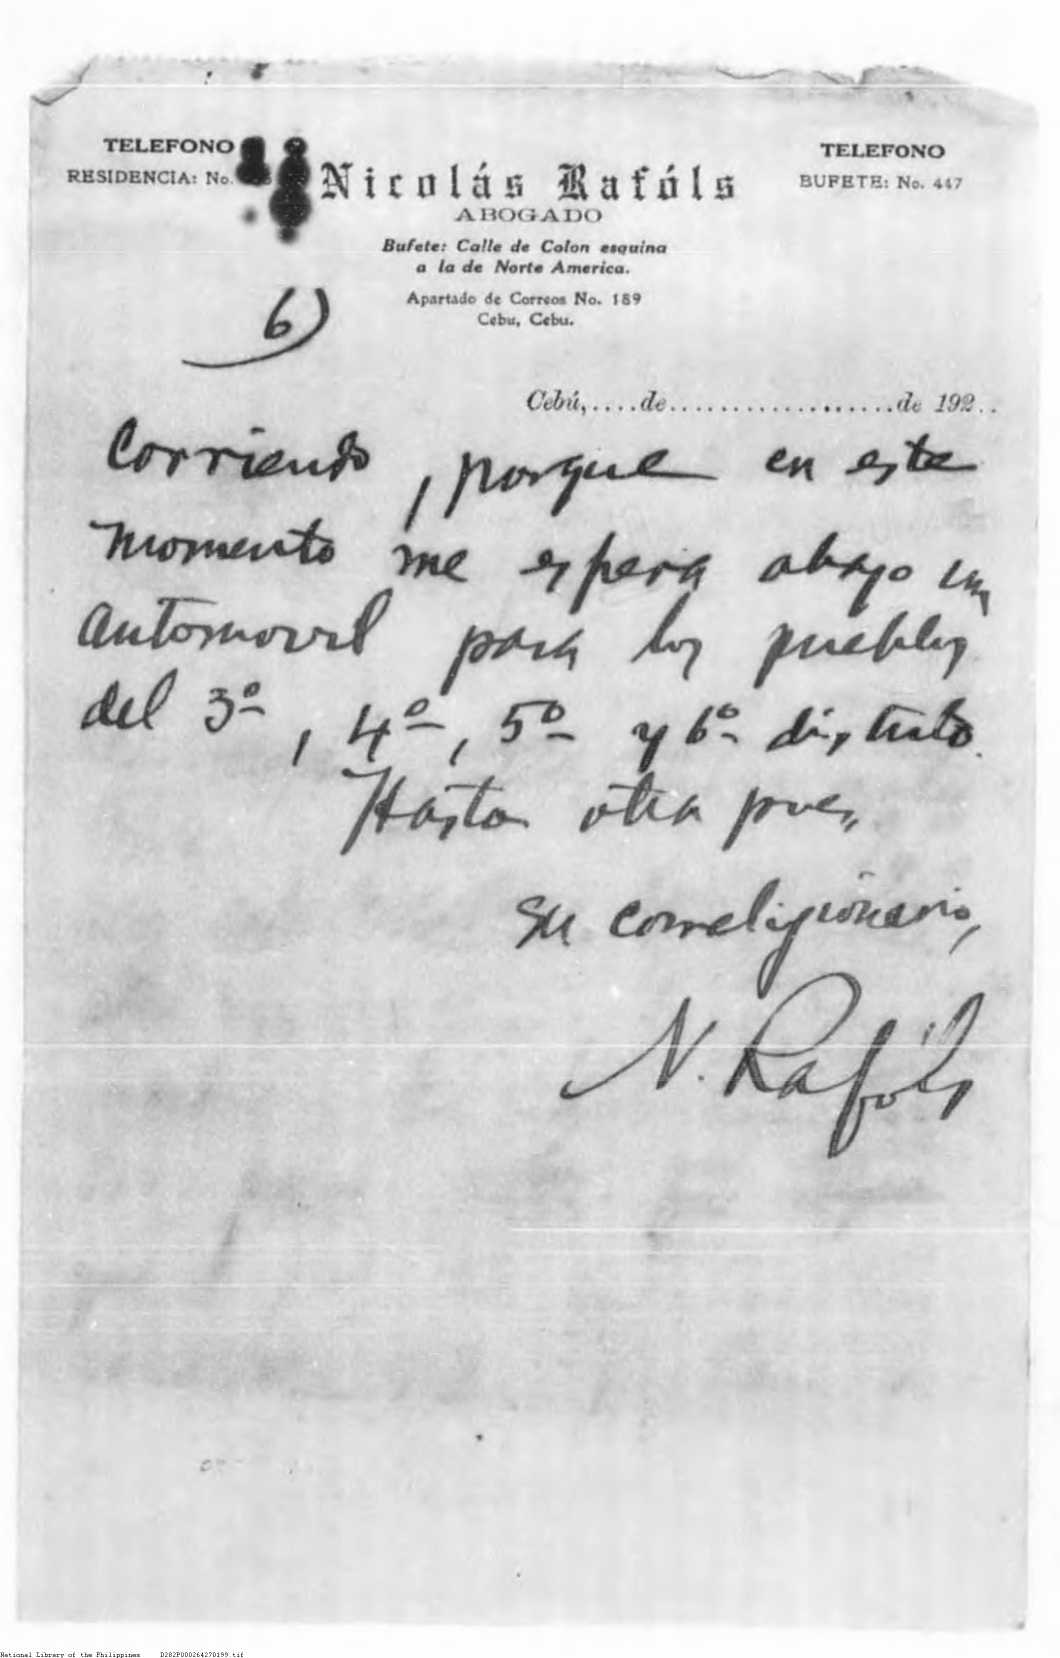 TELEFONO
RESIDENCIA: No.
Nicolás Rafóls
ABOGADO
Bufete: Calle de Colon esquina
a la de Norte America.
Apartado de Correos No. 189
Cebu, Cebu.
TELEFONO
BUFETE: No. 447
6)
Cebú,....de...................de 192..
Corriendo, porque en este
momento me espera abajo un
automovil para los pueblos
del 3º, 4º, 5º y 6º distrito.
Hasta otra pues,
su correligionario,
N. Rafóls
National Library of the Philippines D282P000264270199.tif